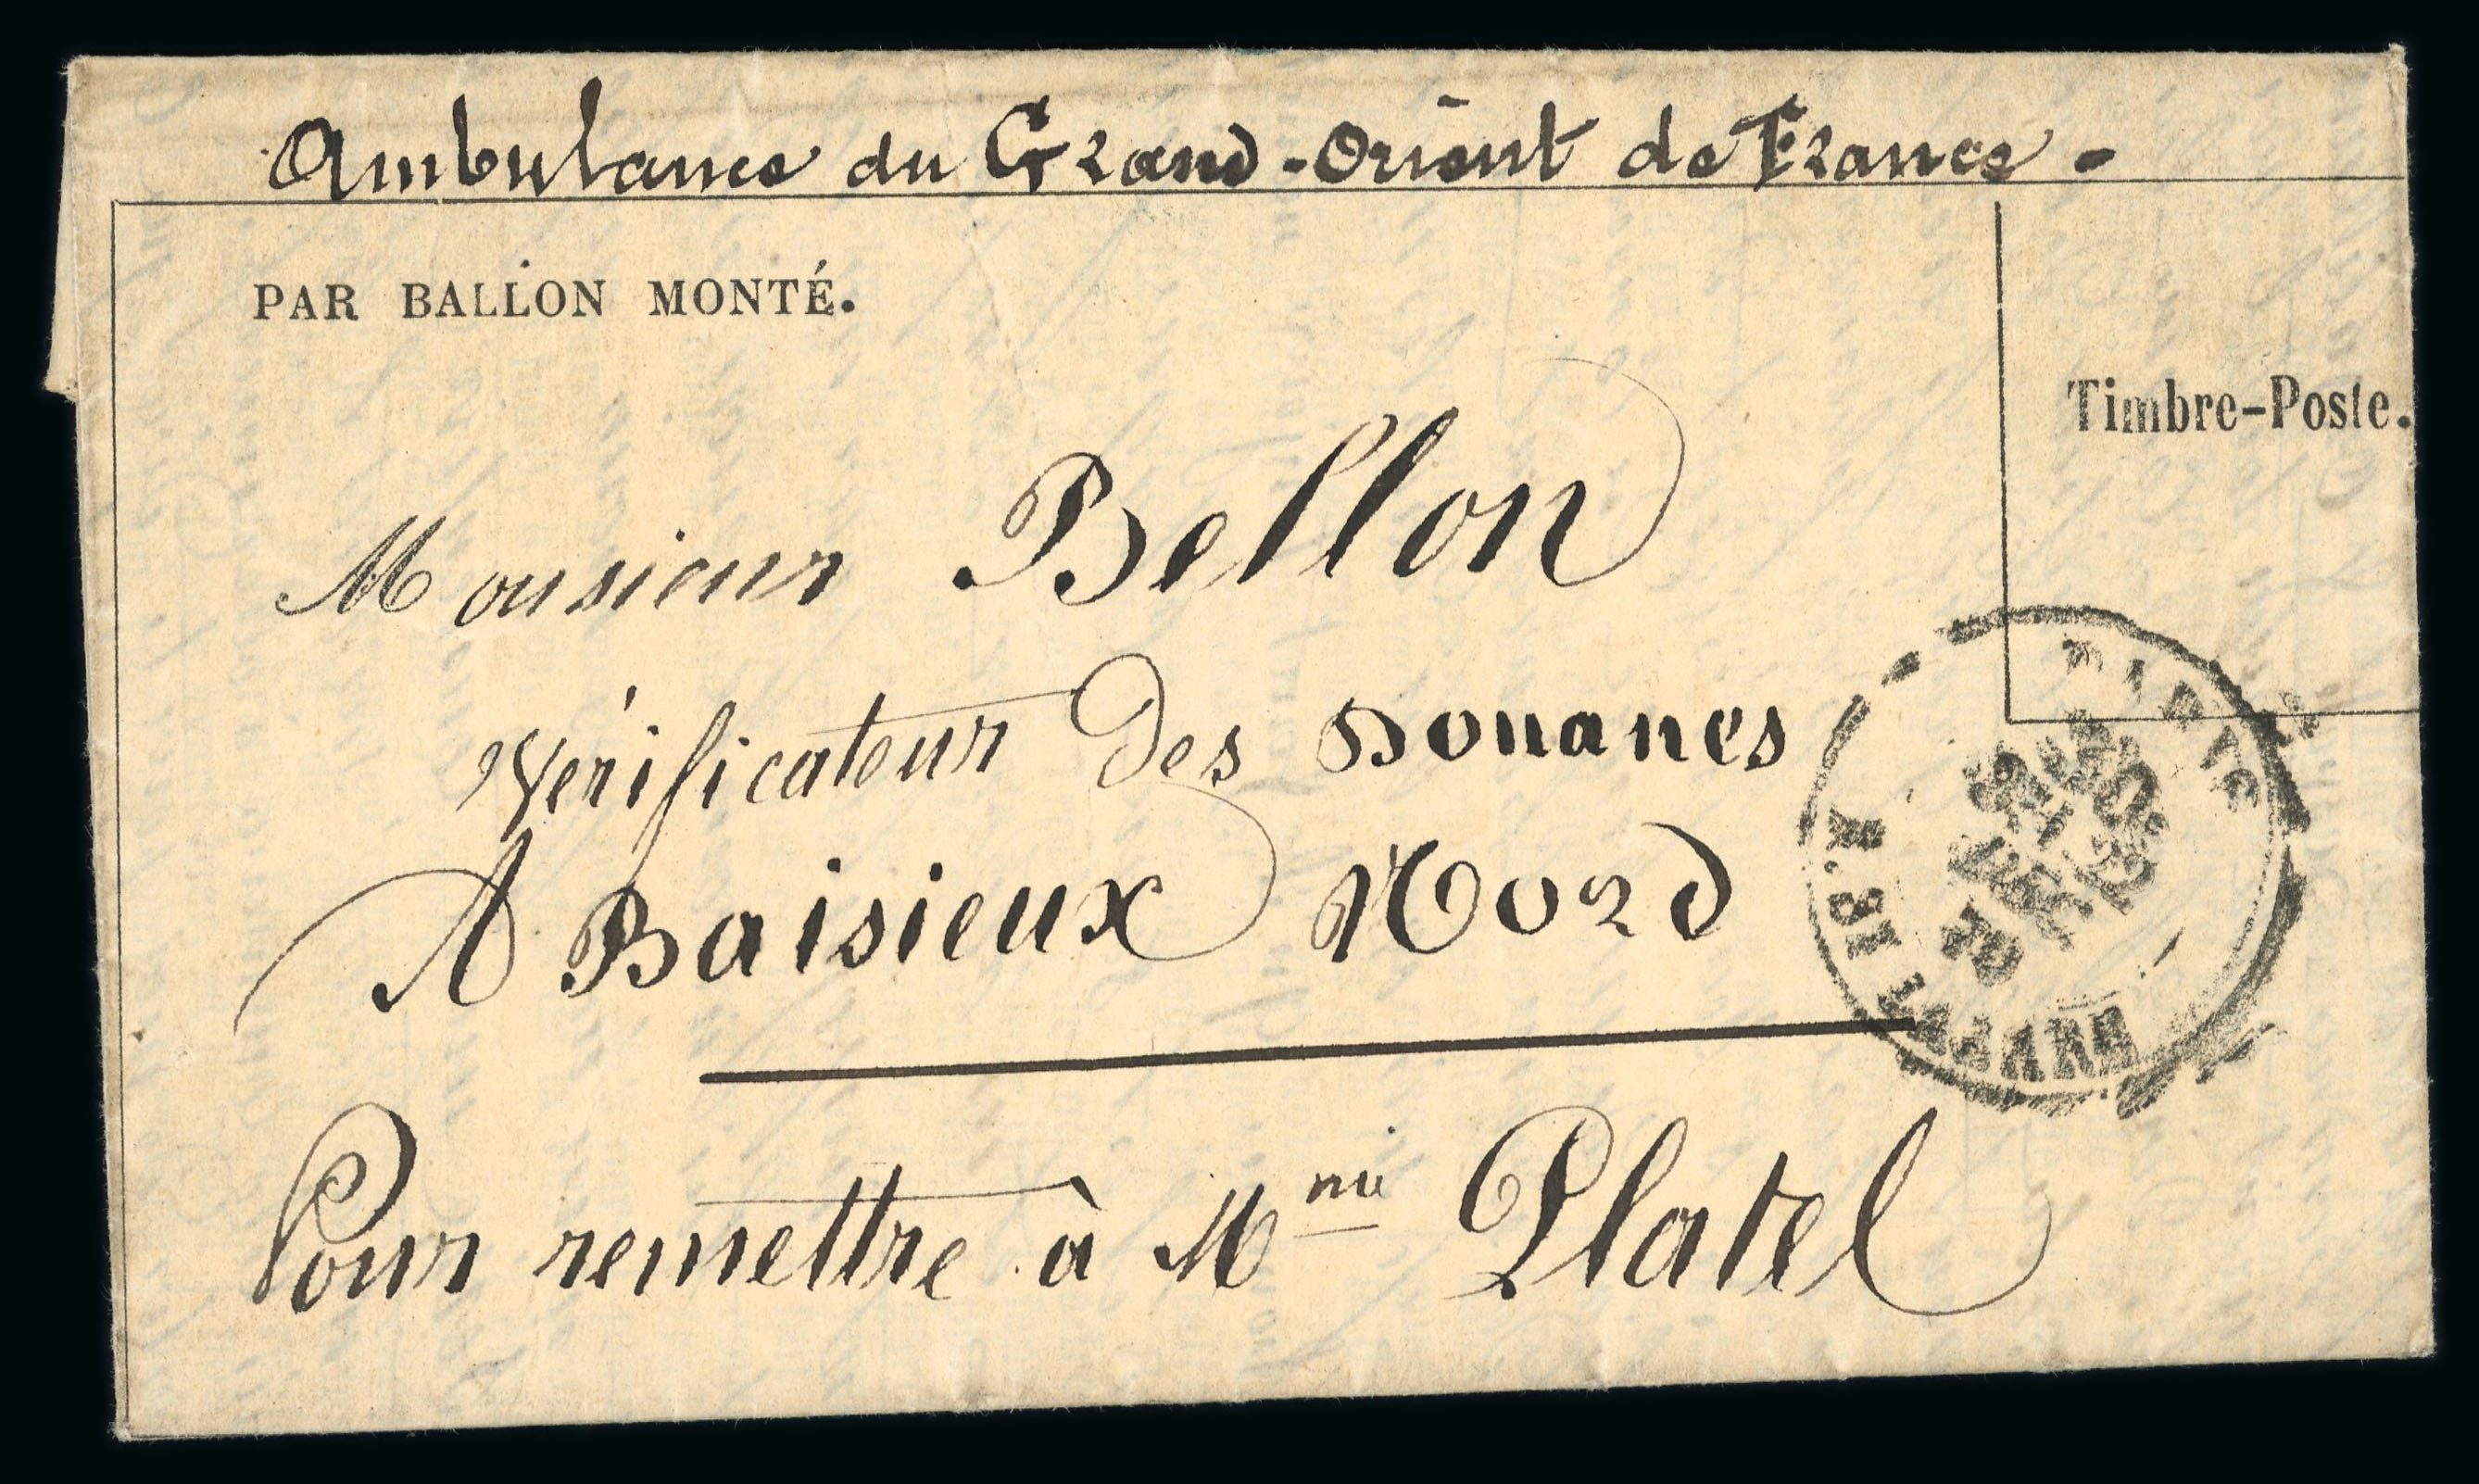 Ambulance du Grand-Orient de France -
PAR BALLON MONTÉ.
Timbre-Poste.
Monsieur Bellon
Vérificateur des Douanes
A Baisieux Nord
Pour remettre à Mme Platel
PARIS
R. ST LAZARE